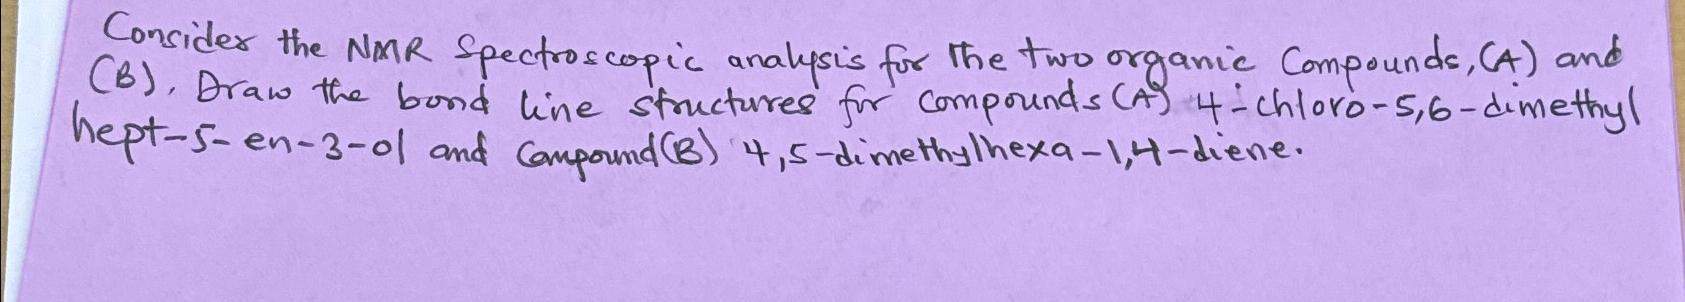 Consider the NMR Spectroscopic analysis for the two organic Compounds, (A) and
(B). Draw the bond line structures for compounds (A) 4-chloro-5,6-dimethyl
hept-5-en-3-ol and Compound (B) 4,5-dimethylhexa-1,4-diene.